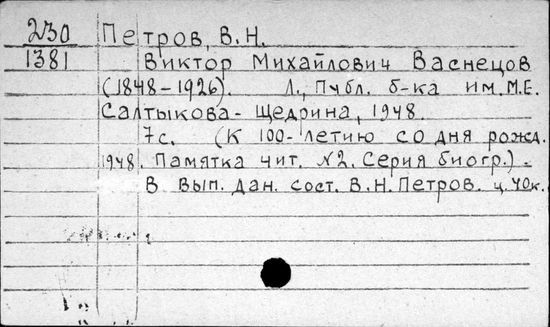 230 Петров, В.Н.
1381 Виктор Михайлович Васнецов
(1848-1926). Л., Публ. б-ка им. М.Е.
Салтыкова-Щедрина, 1948.
7с. (К 100-летию со дня рожд.
1948. Памятка чит. №2. Серия биогр.) -
В вып. дан. сост. В.Н.Петров. ц. 40к.